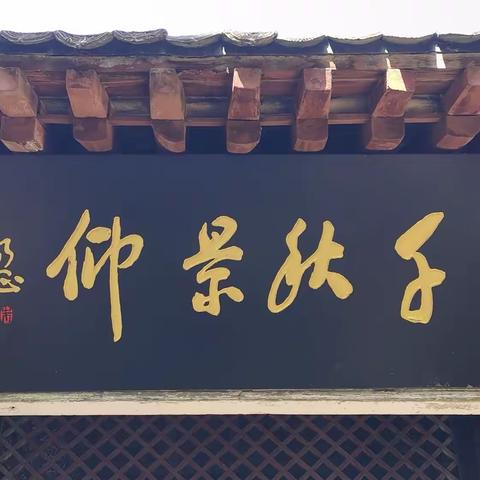 千秋景仰